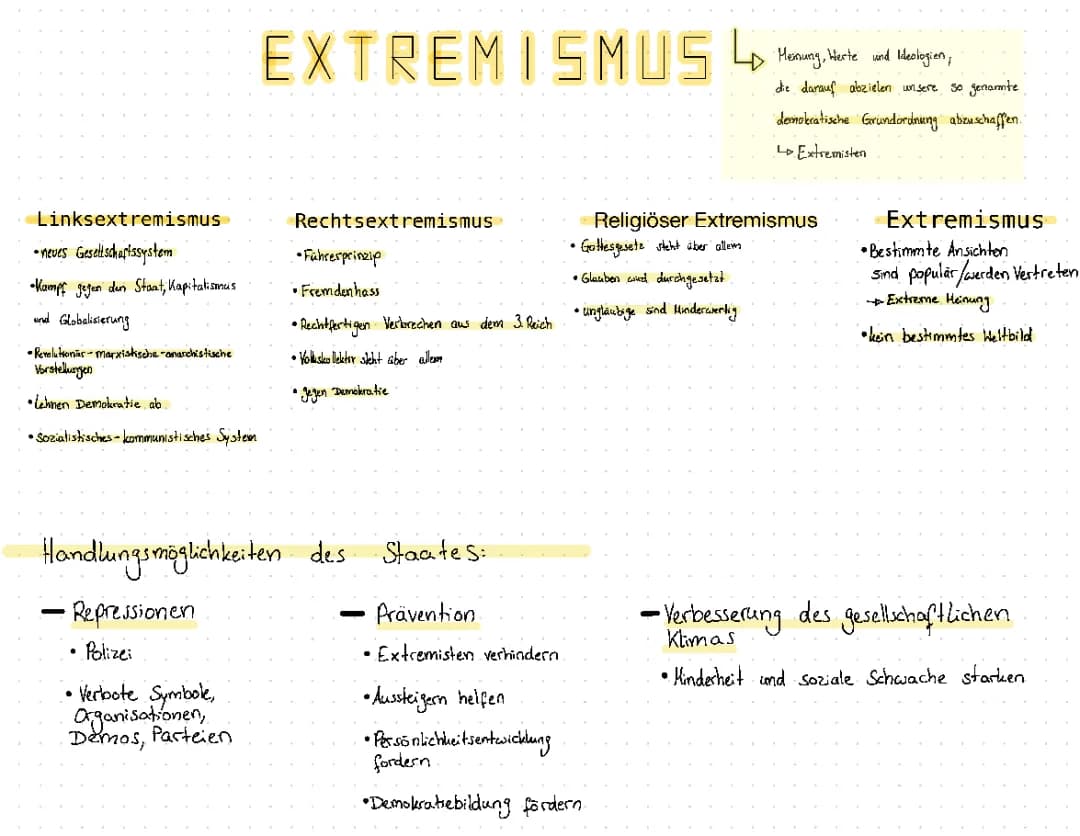 EXTREMISMUS
↳ Meinung, Werte und Ideologien,
die darauf abzielen unsere so genannte
demokratische Grundordnung abzuschaffen.
↳ Extremisten
Linksextremismus
• neues Gesellschaftssystem
• Kampf gegen den Staat, Kapitalismus
und Globalisierung
• Revolutionär-marxistische-anarchistische
Vorstellungen
• lehnen Demokratie ab
• Sozialistisches-kommunistisches System
Rechtsextremismus
• Führerprinzip
• Fremdenhass
• Rechtfertigen Verbrechen aus dem 3. Reich
• Volkskollektiv steht über allem
• gegen Demokratie
Religiöser Extremismus
• Gottesgesetz steht über allem
• Glauben wird durchgesetzt
• ungläubige sind Minderwertig
Extremismus
• Bestimmte Ansichten
sind populär/werden Vertreten
→ Extreme Meinung
• kein bestimmtes Weltbild
Handlungsmöglichkeiten des Staates:
— Repressionen
• Polizei
• Verbote Symbole,
Organisationen,
Demos, Parteien
— Prävention
• Extremisten verhindern
• Aussteigern helfen
• Persönlichkeitsentwicklung
fordern
• Demokratiebildung fördern
— Verbesserung des gesellschaftlichen
Klimas
• Minderheit und soziale Schwache starken